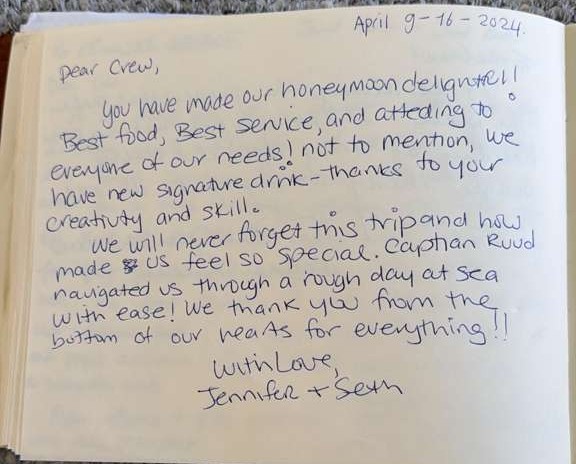 April 9-16-2024.
Dear Crew,
You have made our honeymoon delightful!
Best food, Best service, and atteding to
everyone of our needs! not to mention, we
have new signature drink - thanks to your
creativity and skill.
We will never forget this trip and how
made us feel so special. Capthan Ruud
navigated us through a rough day at sea
with ease! We thank you from the
bottom of our hearts for everything!!
With Love,
Jennifer + Seth